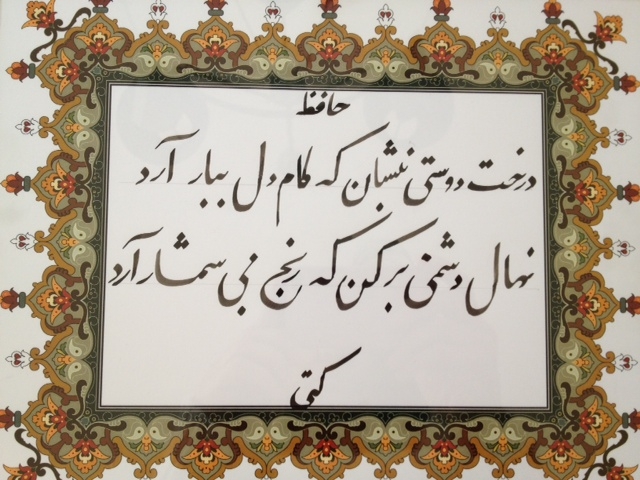 حافظ
درخت دوستی بنشان که کام دل ببار آرد
نهال دشمنی برکن که رنج بی شمار آرد
کتی